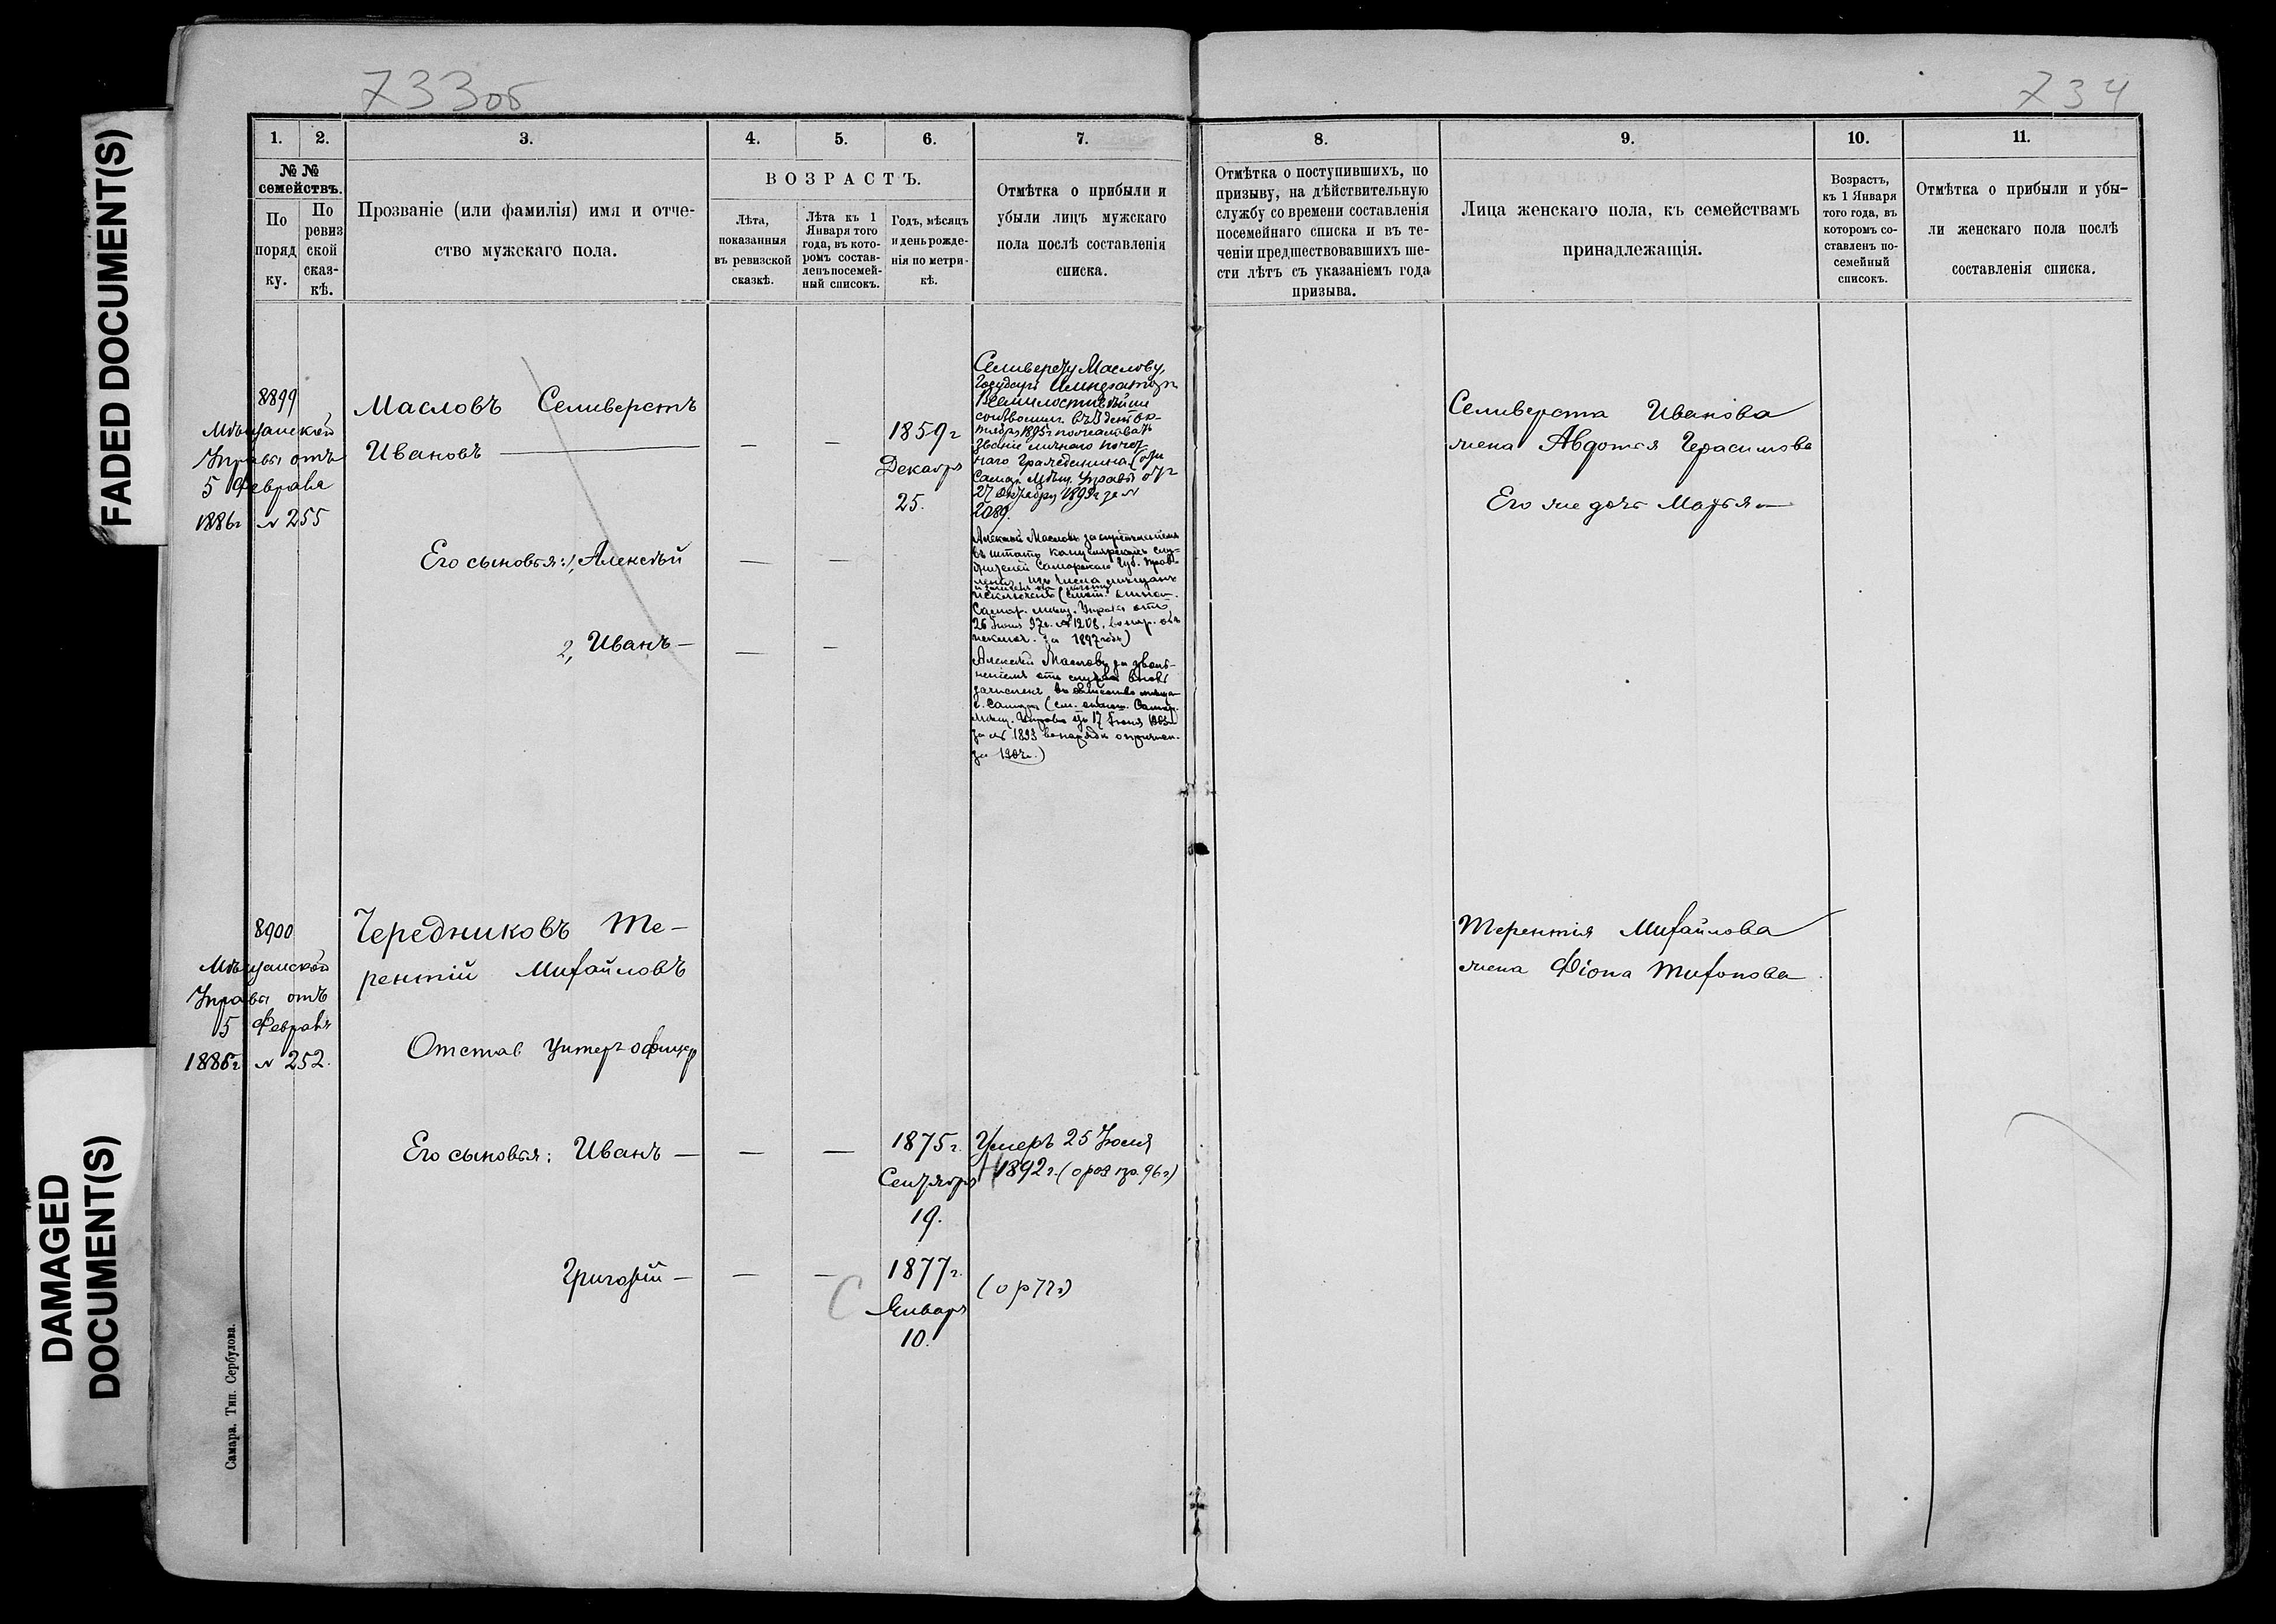 733об
734
FADED DOCUMENT(S)
DAMAGED
DOCUMENT(S)
1.
2.
3.
4.
5.
6.
7.
№ №
семействъ.
По
поряд
ку.
По
ревиз
ской
сказ-
кѣ.
Прозваніе (или фамилія) имя и отче-
ство мужскаго пола.
ВОЗРАСТЪ.
Лѣта,
показанныя
въ ревизской
сказкѣ.
Лѣта къ 1
Января того
года, въ кото-
ромъ состав-
ленъ посемей-
ный списокъ.
Годъ, мѣсяцъ
и день рожде-
нія по метри-
кѣ.
Отмѣтка о прибыли и
убыли лицъ мужскаго
пола послѣ составленія
списка.
8.
9.
10.
11.
Отмѣтка о поступившихъ, по
призыву, на дѣйствительную
службу со времени составленія
посемейнаго списка и въ те-
ченіи предшествовавшихъ ше-
сти лѣтъ съ указаніемъ года
призыва.
Лица женскаго пола, къ семействамъ
принадлежащія.
Возрастъ,
къ 1 Января
того года, въ
которомъ со-
ставленъ по-
семейный
списокъ.
Отмѣтка о прибыли и убы-
ли женскаго пола послѣ
составленія списка.
8899
Мѣщанской
Управы отъ
5 Феврала
1886г № 255
Масловъ Селиверстъ
Ивановъ
— —
1859г
Декабря
25.
Селиверсту Маслову,
Государь Императоръ
Всемилостивѣйше
соизволилъ въ
1895г пожаловать
званіе личнаго почет
наго гражданина (отн
Самар. Мѣщ. Управы отъ
27 Октября 189 г за №
2089.
Его сыновья: 1, Алексѣй
— —
Алексѣй Масловъ за опредѣленіемъ
въ штатъ канцелярскихъ слу-
жителей Самарскаго Губ. Прав-
ленія, изъ числа мѣщанъ
исключенъ (
Самар. мѣщ. Управы отъ
26 Іюня 97г. № 1208. въ нар. объ
исключ. за 1897 годъ)
2, Иванъ —
— —
Алексѣй Масловъ за уволь-
неніемъ отъ службы вновь
зачисленъ въ общество мѣщан
г. Самары (см. отнош. Самар.
Мѣщ. Управы отъ 17 Іюня
за № 1893 въ нарядѣ о причисл.
за
Селиверста Иванова
жена Авдотья Герасимова
Его же дочь Марья —
8900
Мѣщанской
Управы отъ
5 Феврала
1886г № 252.
Чередниковъ Те-
рентій Михайловъ
Отстав Унтеръ офицер
Терентія Михайлова
жена Фіона Тихонова
Его сыновья: Иванъ —
— —
1875г.
Сентября
19.
Умеръ 25 Іюля
1892г. (о роз пр. 96г)
Григорій —
— —
С
1877г.
Января
10.
(о р 77г)
Самара. Тип. Сербулова.